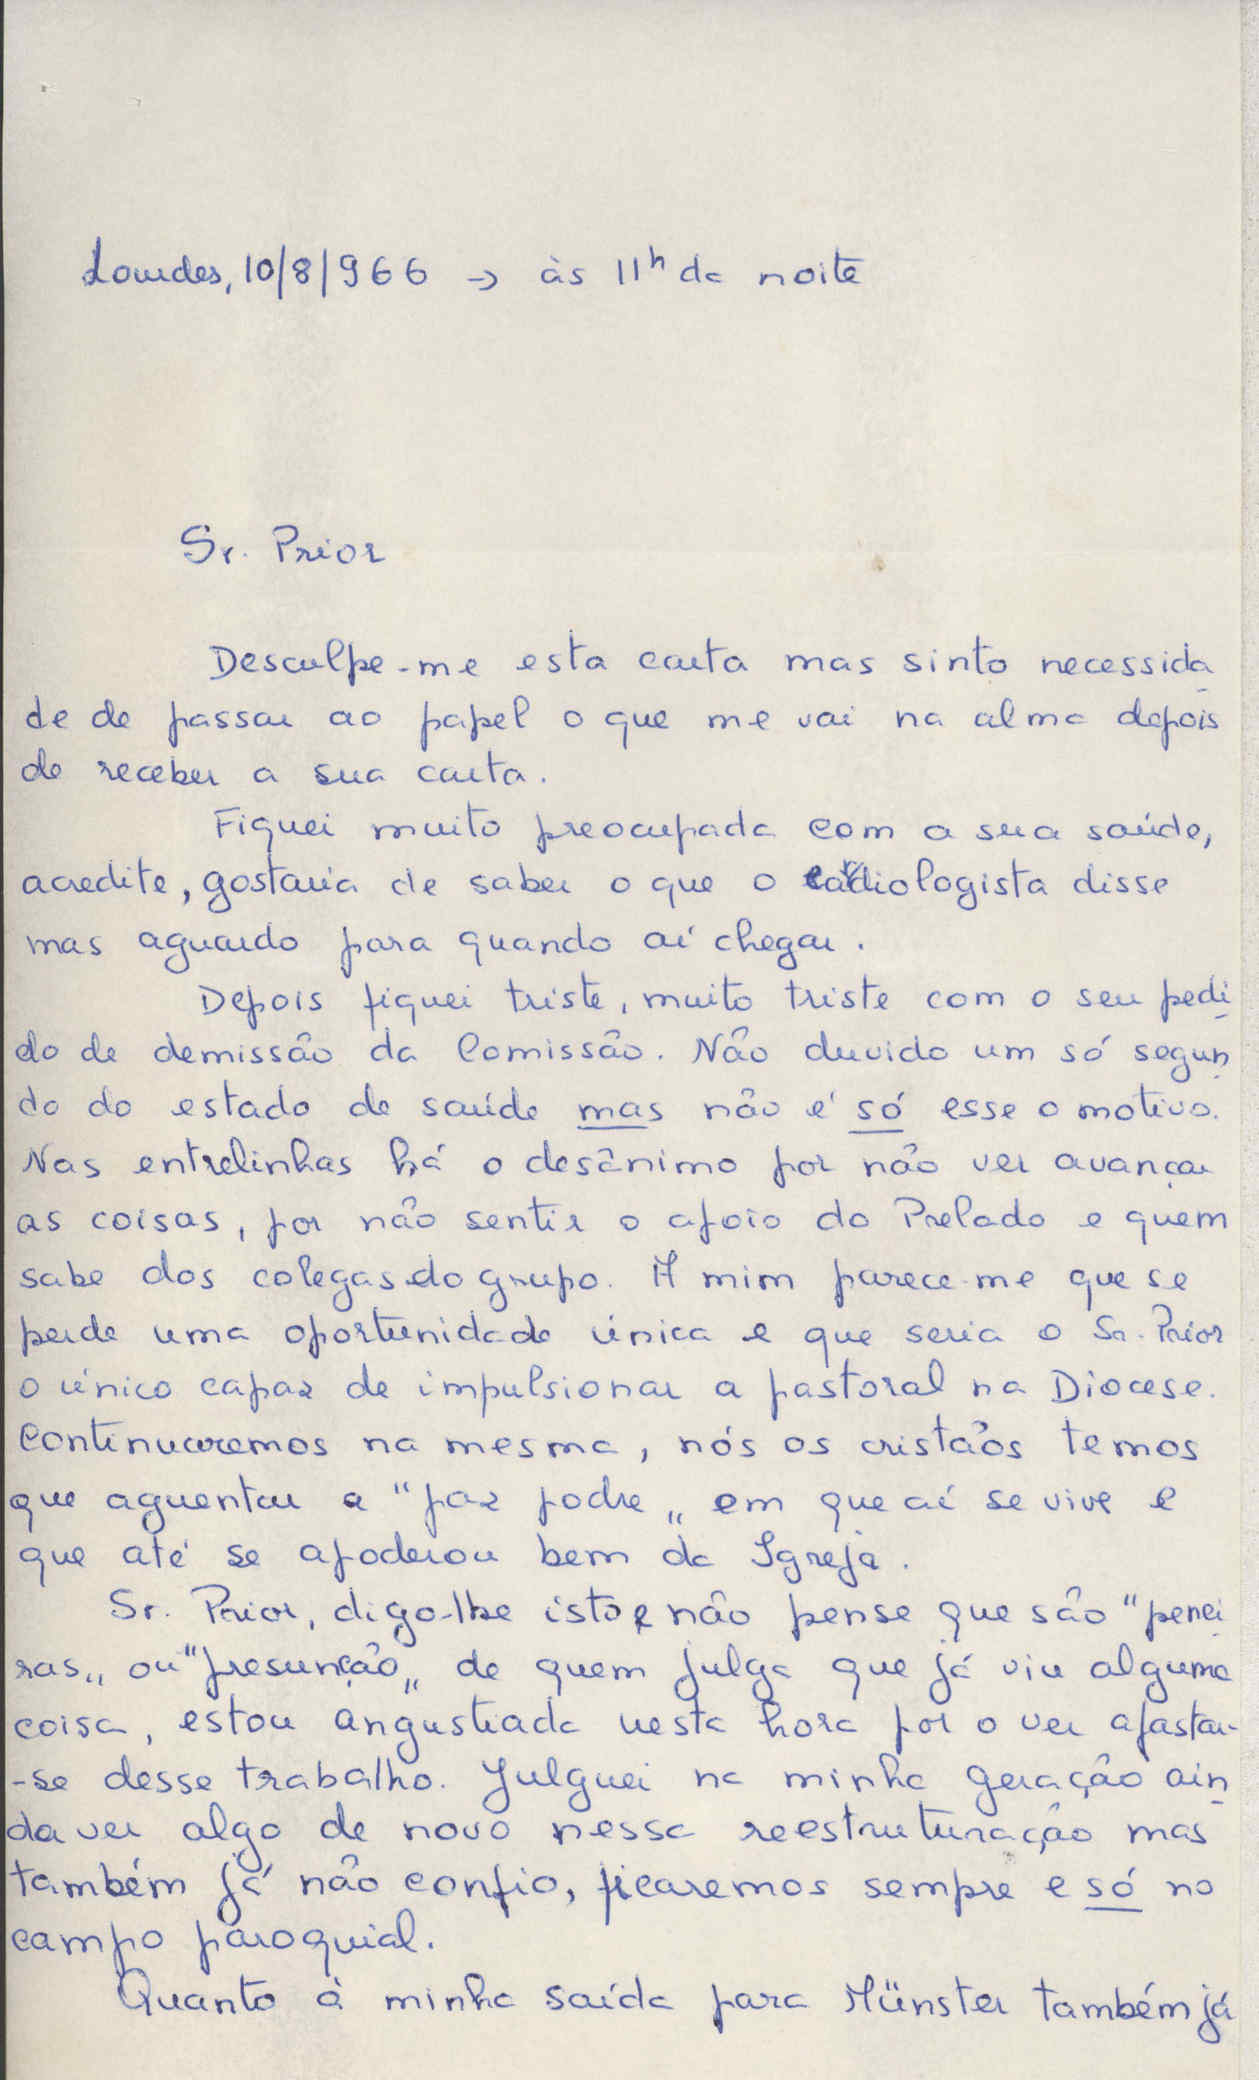 Lourdes, 10/8/966 → às 11h da noite
Sr. Prior
Desculpe-me esta carta mas sinto necessida
de de passar ao papel o que me vai na alma depois
de receber a sua carta.
Fiquei muito preocupada com a sua saúde,
acredite, gostaria de saber o que o cardiologista disse
mas aguardo para quando aí chegar.
Depois fiquei triste, muito triste com o seu pedi
do de demissão da Comissão. Não duvido um só segun
do do estado de saúde mas não é só esse o motivo.
Nas entrelinhas há o desânimo por não ver avançar
as coisas, por não sentir o apoio do Prelado e quem
sabe dos colegas do grupo. A mim parece-me que se
perde uma oportunidade única e que seria o Sr. Prior
o único capaz de impulsionar a pastoral na Diocese.
Continuaremos na mesma, nós os cristãos temos
que aguentar a "paz podre„ em que aí se vive e
que até se apoderou bem da Igreja.
Sr. Prior, digo-lhe isto e não pense que são "penei
ras„ ou "presunção„ de quem julga que já viu alguma
coisa, estou angustiada nesta hora por o ver afastar-
-se desse trabalho. Julguei na minha geração ain
da ver algo de novo nessa reestruturação mas
também já não confio, ficaremos sempre e só no
campo paroquial.
Quanto à minha saída para Münster também já